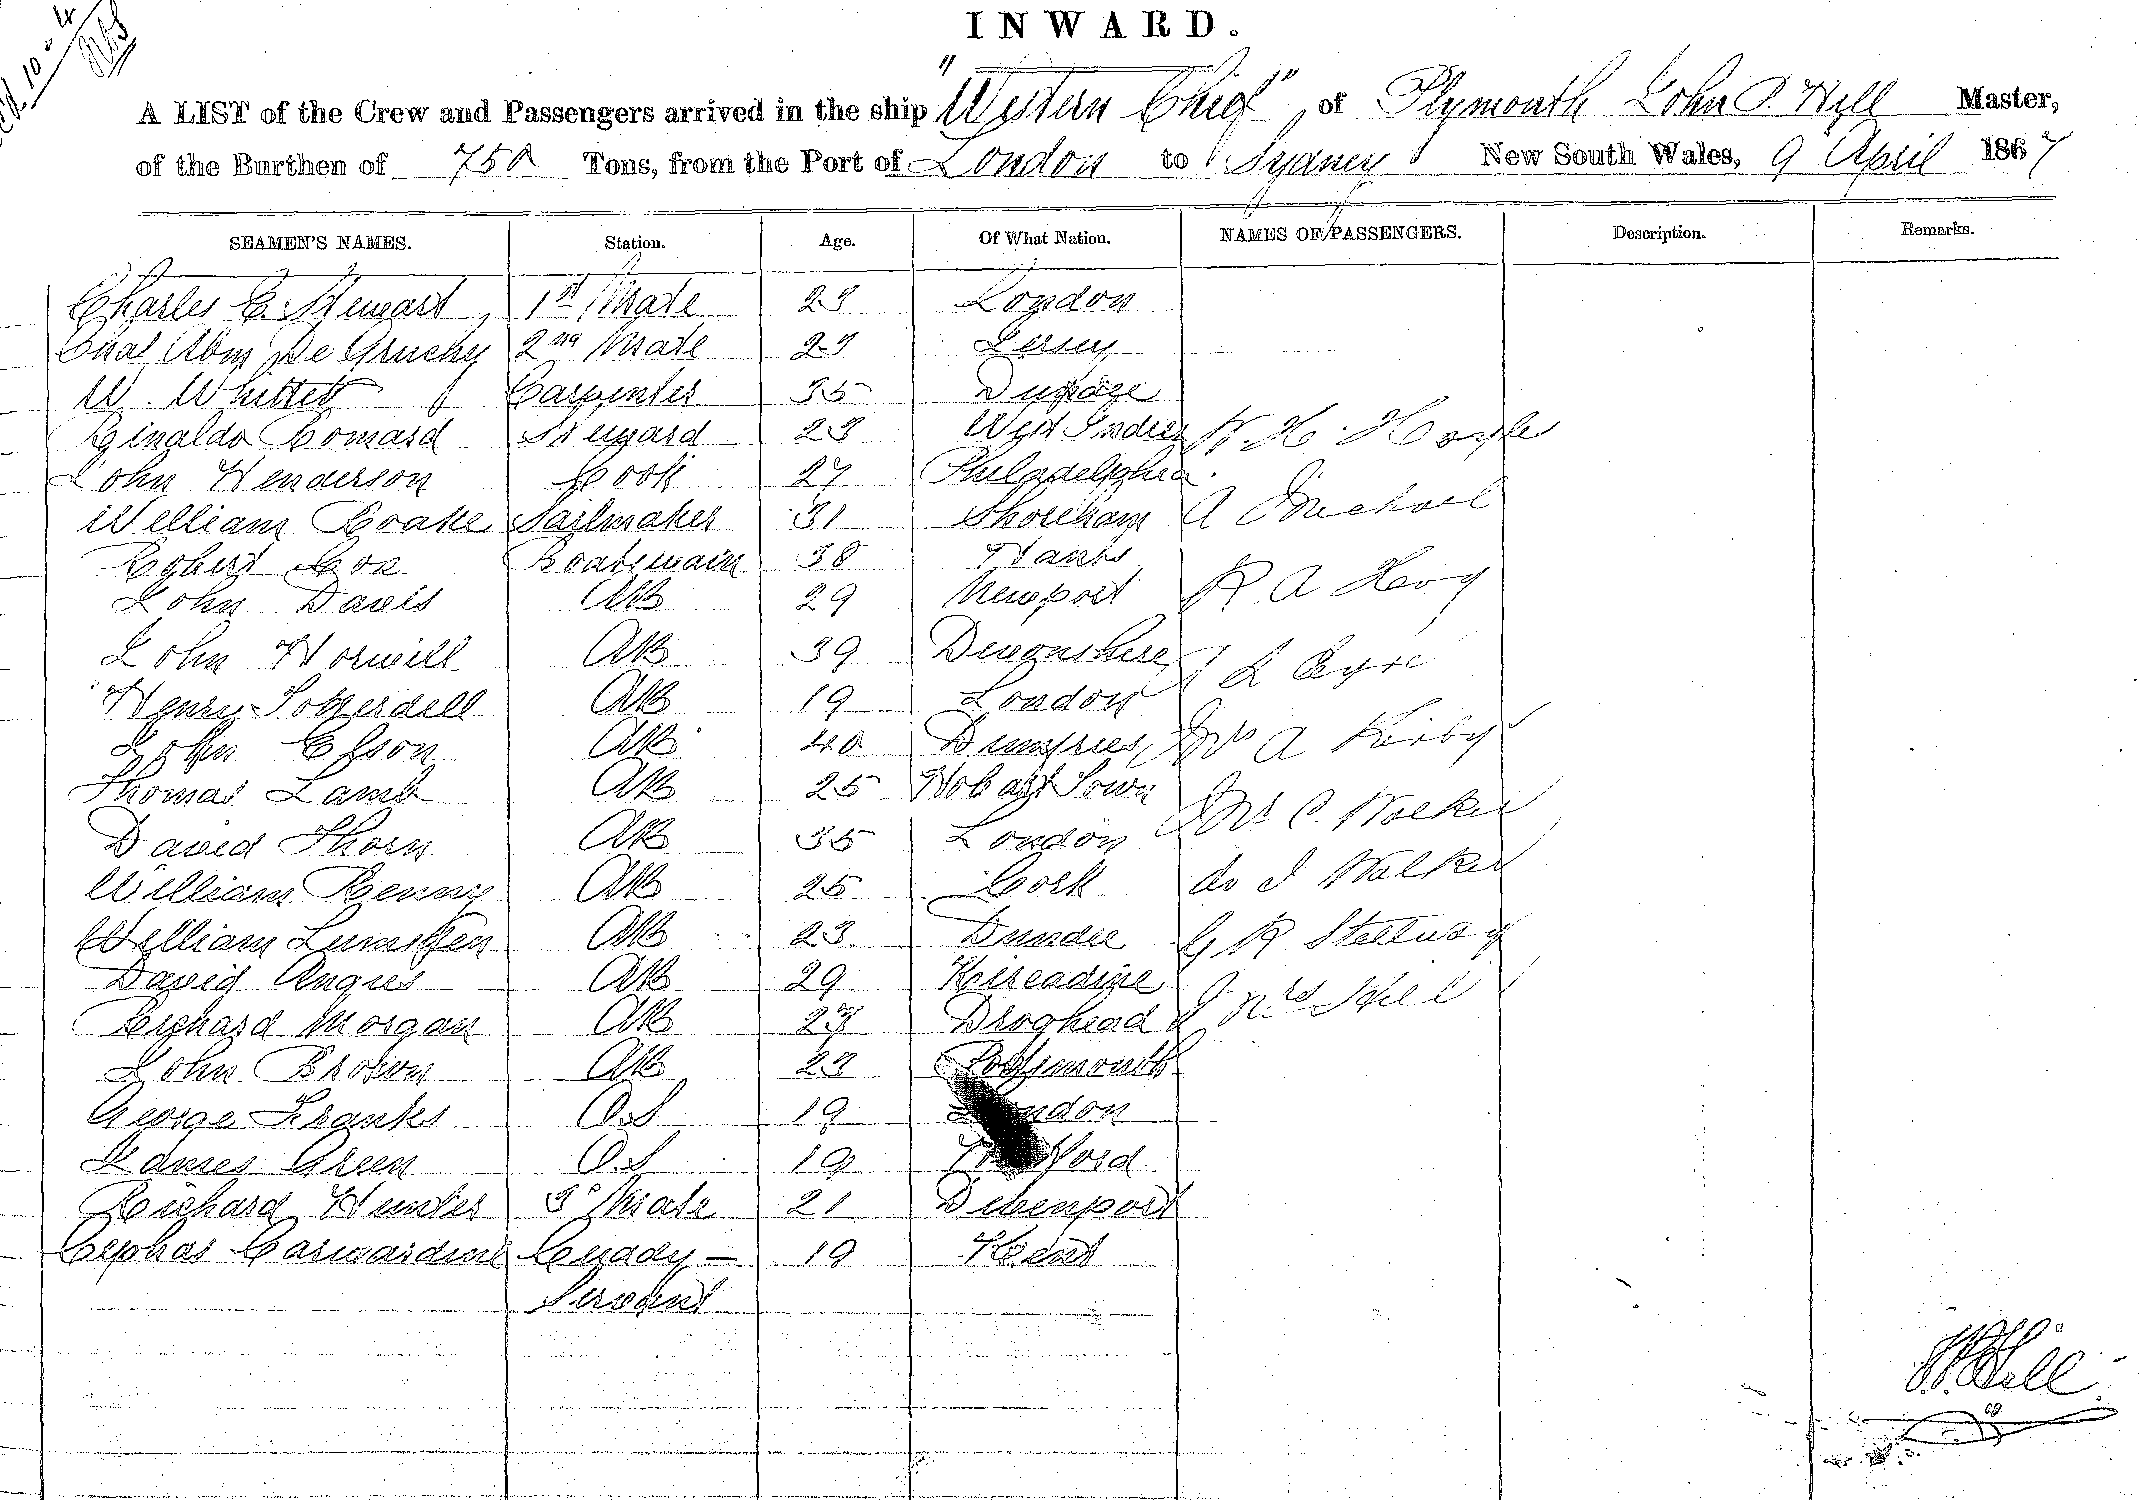 INWARD.
A LIST of the Crew and Passengers arrived in the ship "Western Chief" of Plymouth John P. Hill Master,
of the Burthen of 750 Tons, from the Port of London to Sydney New South Wales, 9 April 1867
SEAMEN'S NAMES. Station. Age. Of What Nation. NAMES OF PASSENGERS. Description. Remarks.
Charles C. Stewart 1st Mate 23 London
Chas Abm De Gruchy 2nd Mate 23 Jersey
W. Whittet Carpenter 35
Reginaldo Comard Steward 23 West Indies W. H. Hoyle
John Henderson Cook 27 Philadelphia
William Coake Sailmaker 31 Shoreham A Michael
Robert Cox Boatswain 38 Hants
John Davis AB 29 Newport R A
John Horwill AB 39 Devonshire J L Eyre
Henry Sotherdell AB 19 London
John Esson AB 40 Dumfries Mrs A Kirby
Thomas Lamb AB 25 Hobart Town
David Thorn AB 35 London Mrs C. Walker
William Kenny AB 25 Cork do J Walker
William Lumsden AB 23 Dundee G R
David Angus AB 29 Kincadine
Richard Morgan AB 23 Droghead Mrs Hill
John Brown AB 23 Portsmouth
George Franks O.S 19 London
James Green O.S 19
Richard Hunter 3d Mate 21 Devenport
Cephas Carwardine Cuddy - 19 Kent
Servant
J.P. Hill